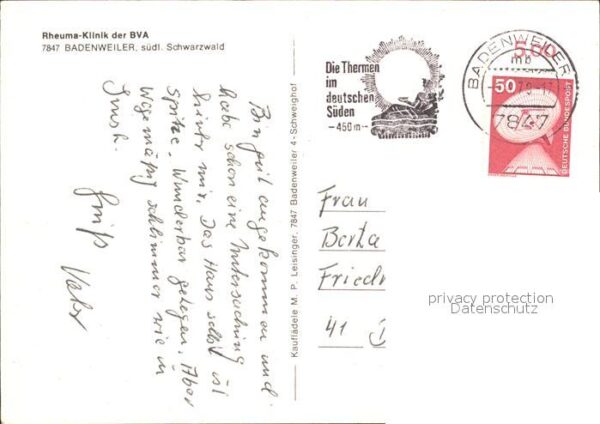 Rheuma-Klinik der BVA
7847 BADENWEILER, südl. Schwarzwald
Bin gut angekommen und
habe schon eine Untersuchung
hinter mir. Das Haus selbst ist
spitze. Wunderbar gelegen. Aber
schlimmer wie in
Gruß
Kauflädele M. P. Leisinger, 7847 Badenweiler 4 - Schweighof
Die Thermen
im
deutschen
Süden
- 450 m -
BADENWEILER
mb
7847
50
DEUTSCHE BUNDESPOST
Frau
Berta
Friedr
41
privacy protection
Datenschutz